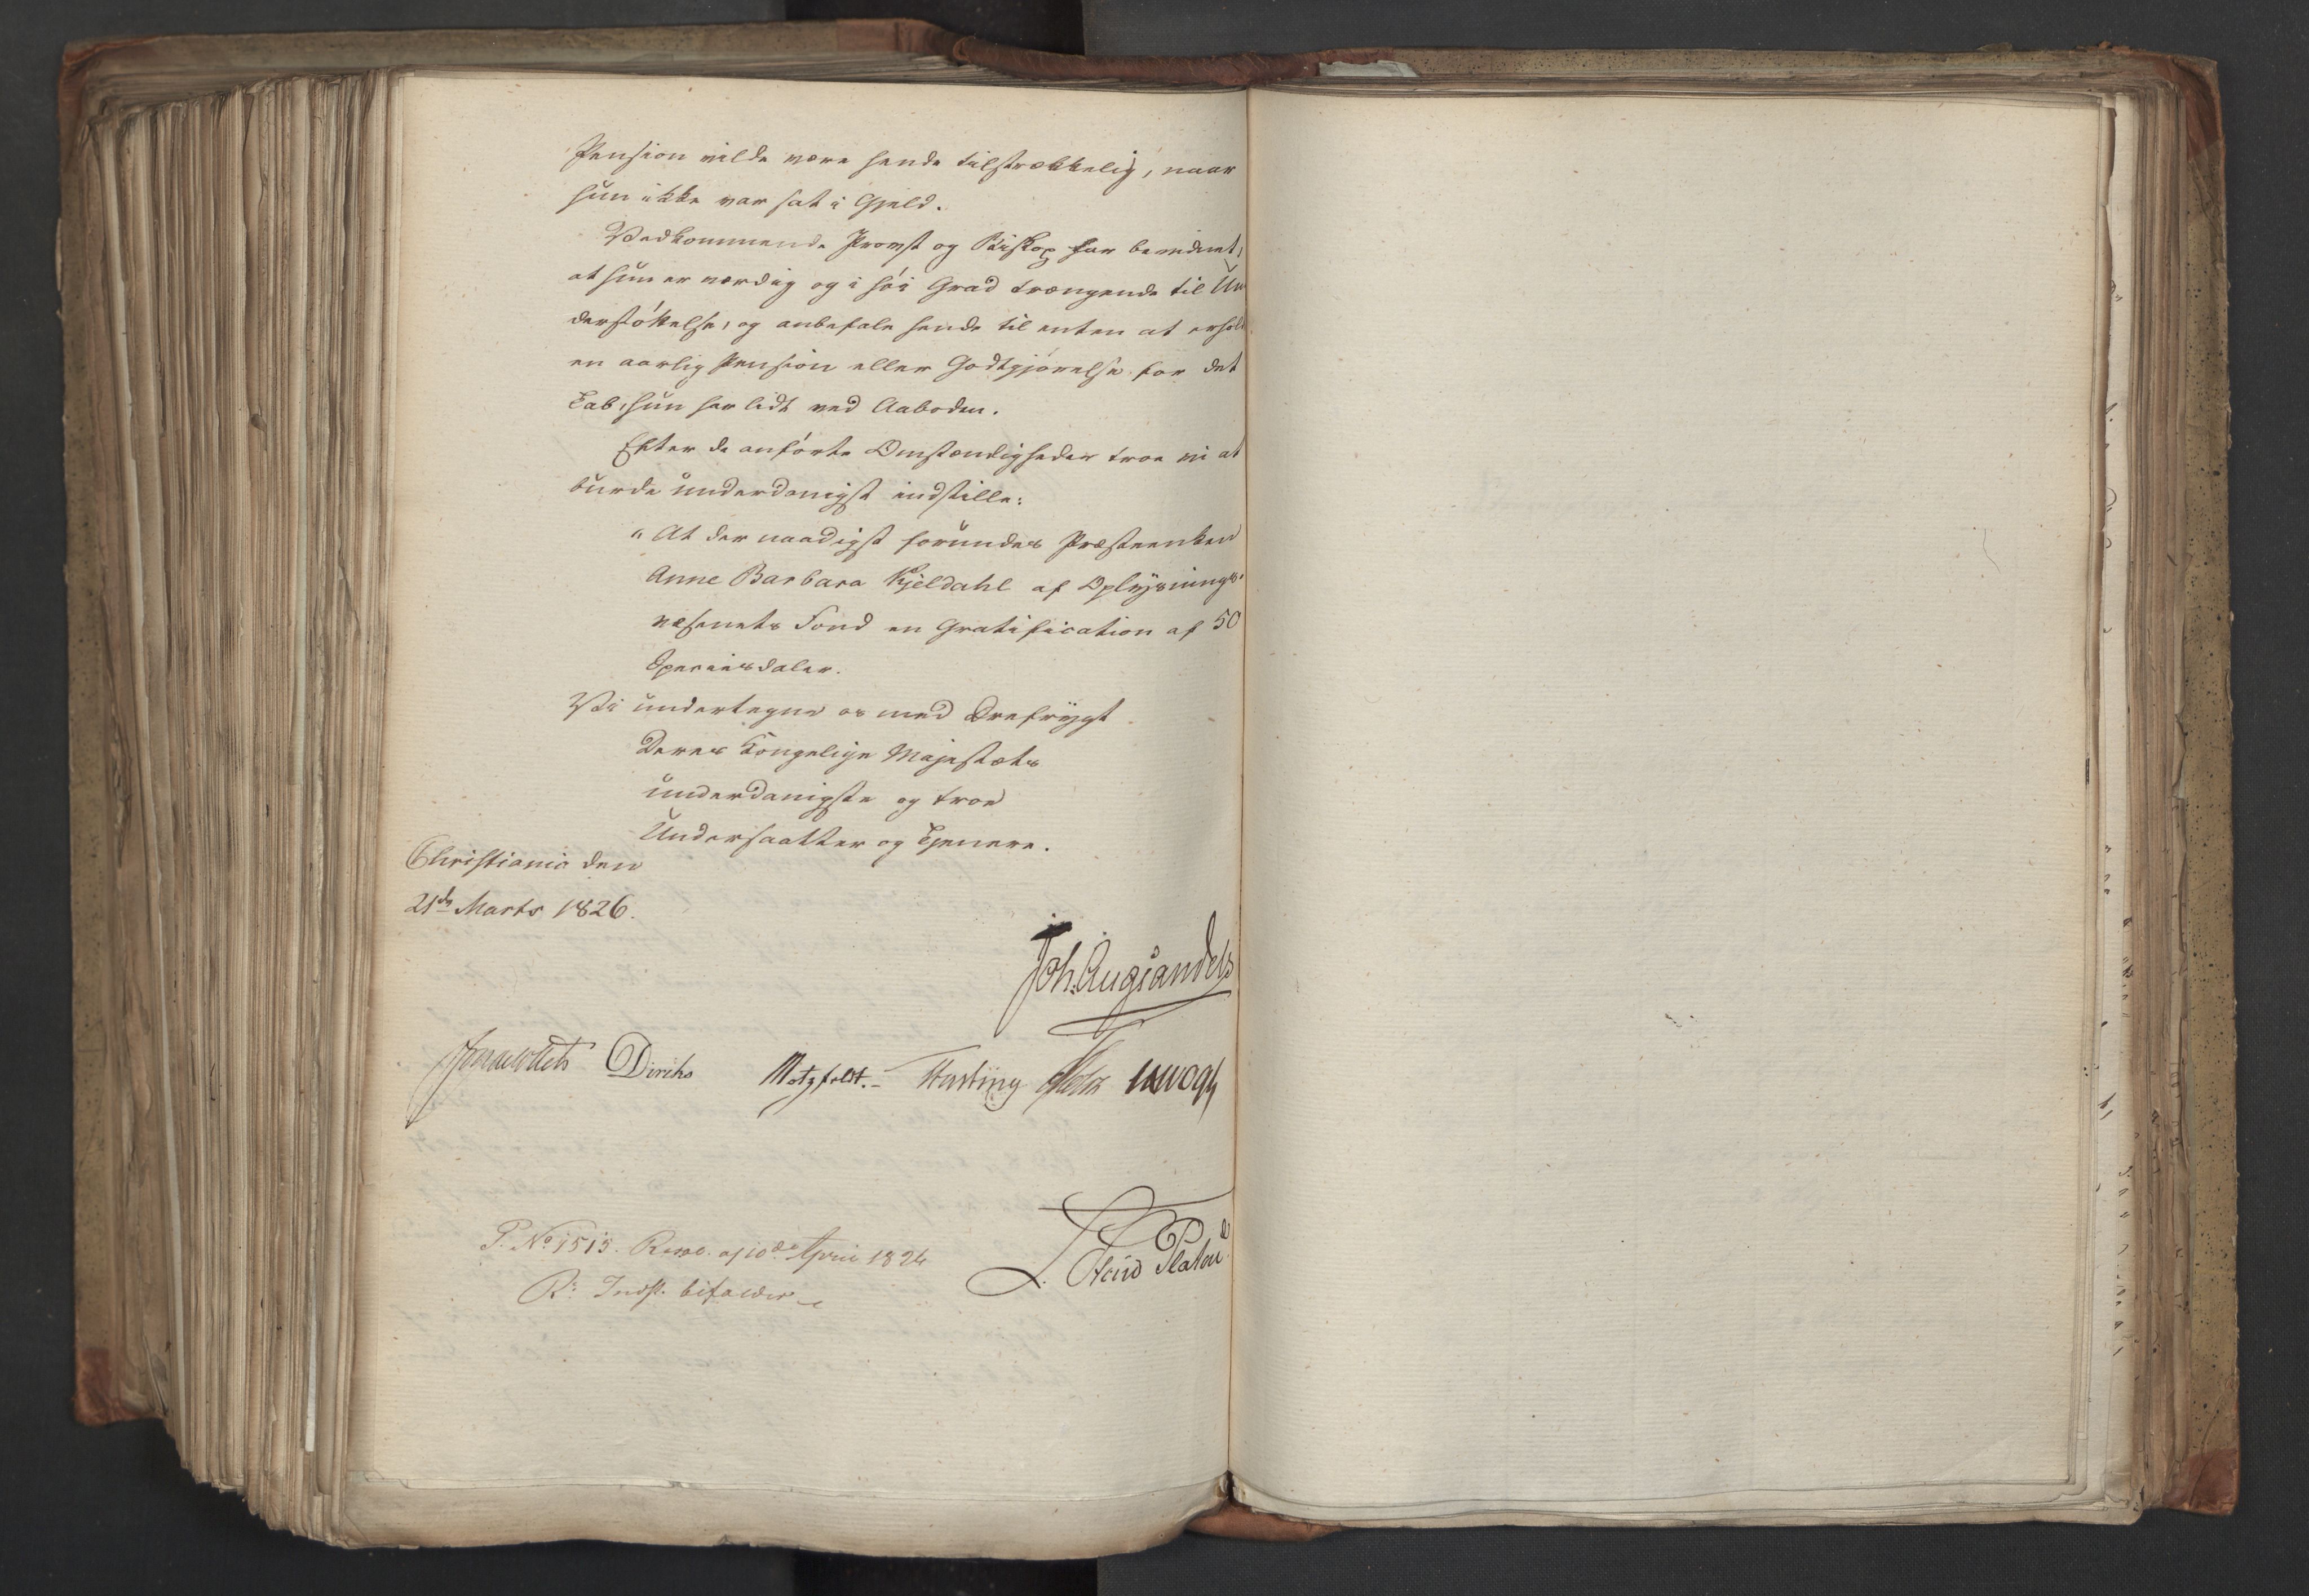 Pension vilde være hende tilstrækkelig, naar
hun ikke var sat i Gjeld.
Vedkommende Provst og Biskop har bevidnet,
at hun er værdig og i høi Grad trængende til Un
derstøttelse, og anbefale hende til enten at erhold
en aarlig Pension eller Godtgjørelse for det
Tab, hun har lidt ved Aaboden.
Efter de anførte Omstændigheder troe vi at
burde underdanigst indstille:
"At der naadigst forundes Præsteenken
Anne Barbara Kjeldahl af Oplysnings-
væsenets Fond en Gratification af 50
Speciesdaler.
Vi undertegne os med Ærefrygt
Deres Kongelige Majestæts
underdanigste og troe
Undersaatter og Tjenere.
Christiania den
21de Marts 1826.
Joh. Aug. Sandels
Diriks Motzfeldt.
P. No 1513. Reso. af 10de April 1826
R: Indst. bifaldes